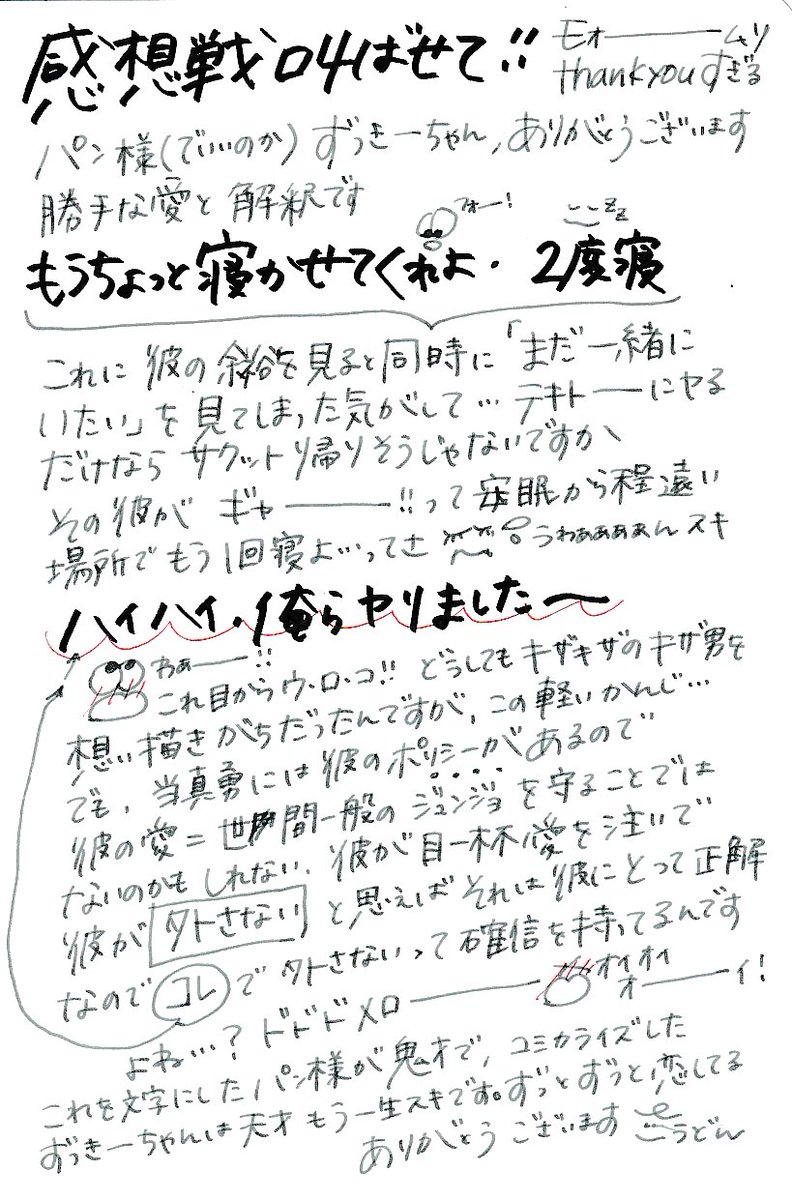 感想戦叫ばせて!!
モォーームリ
thankyouすぎる
パン様(でいいのか)ずっきーちゃん,ありがとうございます
勝手な愛と解釈です
フォー!
もうちょっと寝かせてくれよ・2度寝
これに彼の余裕を見ると同時に「まだ一緒に
いたい」を見てしまった気がして…テキトーにヤる
だけならサクット帰りそうじゃないですか
その彼がギャーー!!って安眠から程遠い
場所でもう1回寝よ…ってさ うわぁぁぁぁん スキ
ハイハイ・俺らヤリました〜
わぁー!!
これ目からウ・ロ・コ!! どうしてもキザキザのキザ男を
想い描きがちだったんですが,この軽いかんじ…
でも,当真勇には彼のポリシーがあるので
彼の愛=世間一般のジュンジョを守ることでは
ないのかもしれない.彼が目一杯愛を注いで
彼が タトさない と思えばそれは彼にとって正解
なので コレ で タトさないって確信を持ってるんです
よね…? ドドドメローー オイオイオーーイ!
これを文字にしたパン様が鬼才で,コミカライズした
ずっきーちゃんは天才 もう一生スキです。ずっとずっと恋してる
ありがとうございます うどん